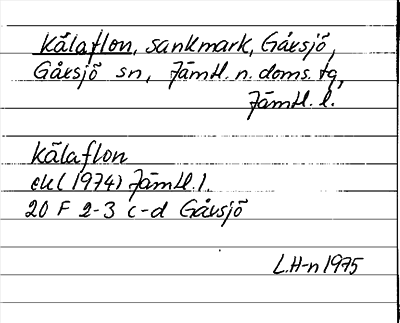 Kålaflon, sankmark, Gåxsjö,
Gåxsjö sn, Jämtl. n. doms. tg,
Jämtl. l.
Kålaflon
ek (1974) Jämtl. l.
20 F 2-3 c-d Gåxsjö
L.H-n 1975